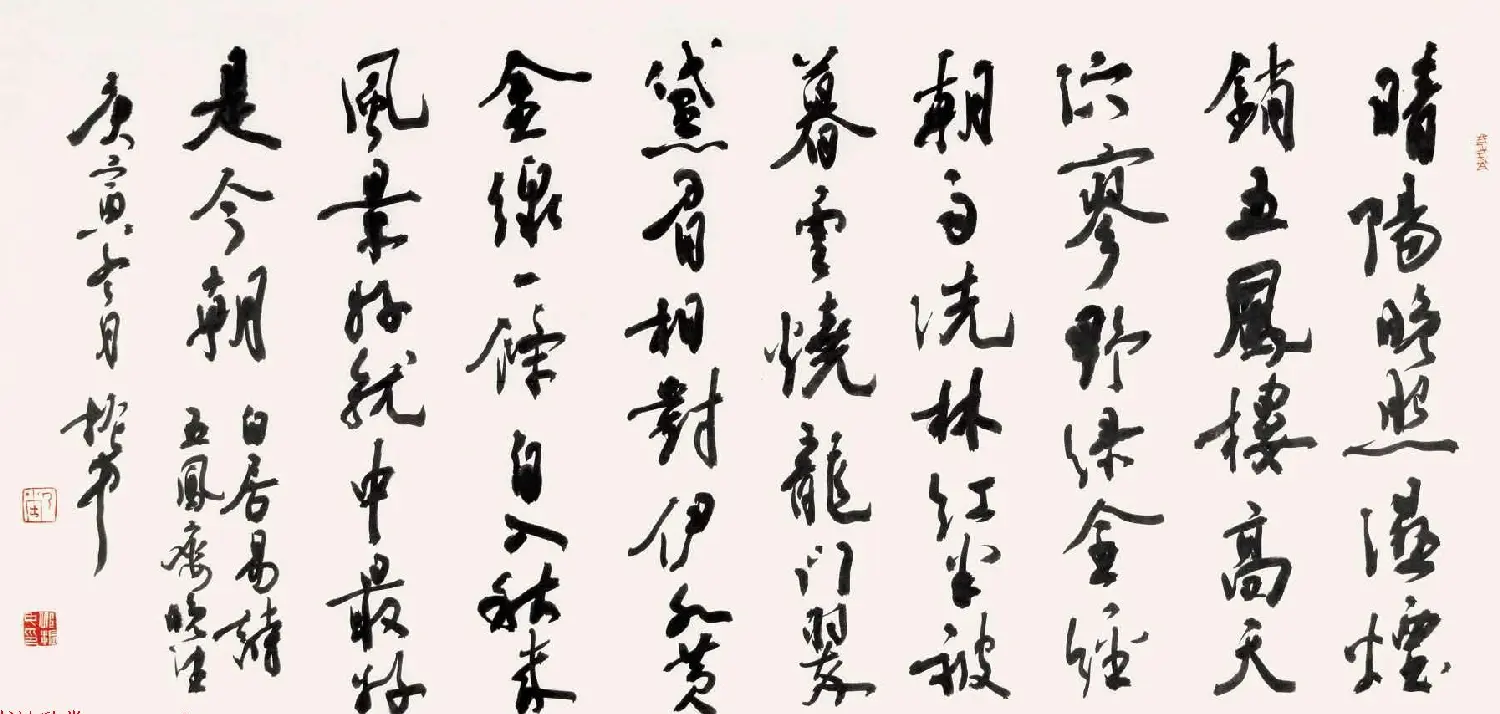 晴陽晚照濕煙
銷五鳳樓高天
泬寥野綠全經
朝雨洗林紅半被
暮雲燒龍門翠
黛眉相對伊水黃
金線一條自入秋來
風景好就中最好
是今朝
白居易詩
五鳳樓晚望
庚寅冬月